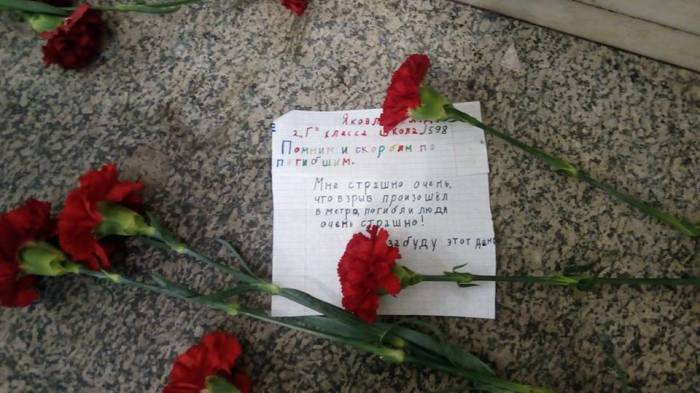 2 "Г" класса школа 598
Помним и скорбим по
погибшим.
Мне страшно очень,
что взрыв произошёл
в метро, погибли люди
очень страшно!
забуду этот день